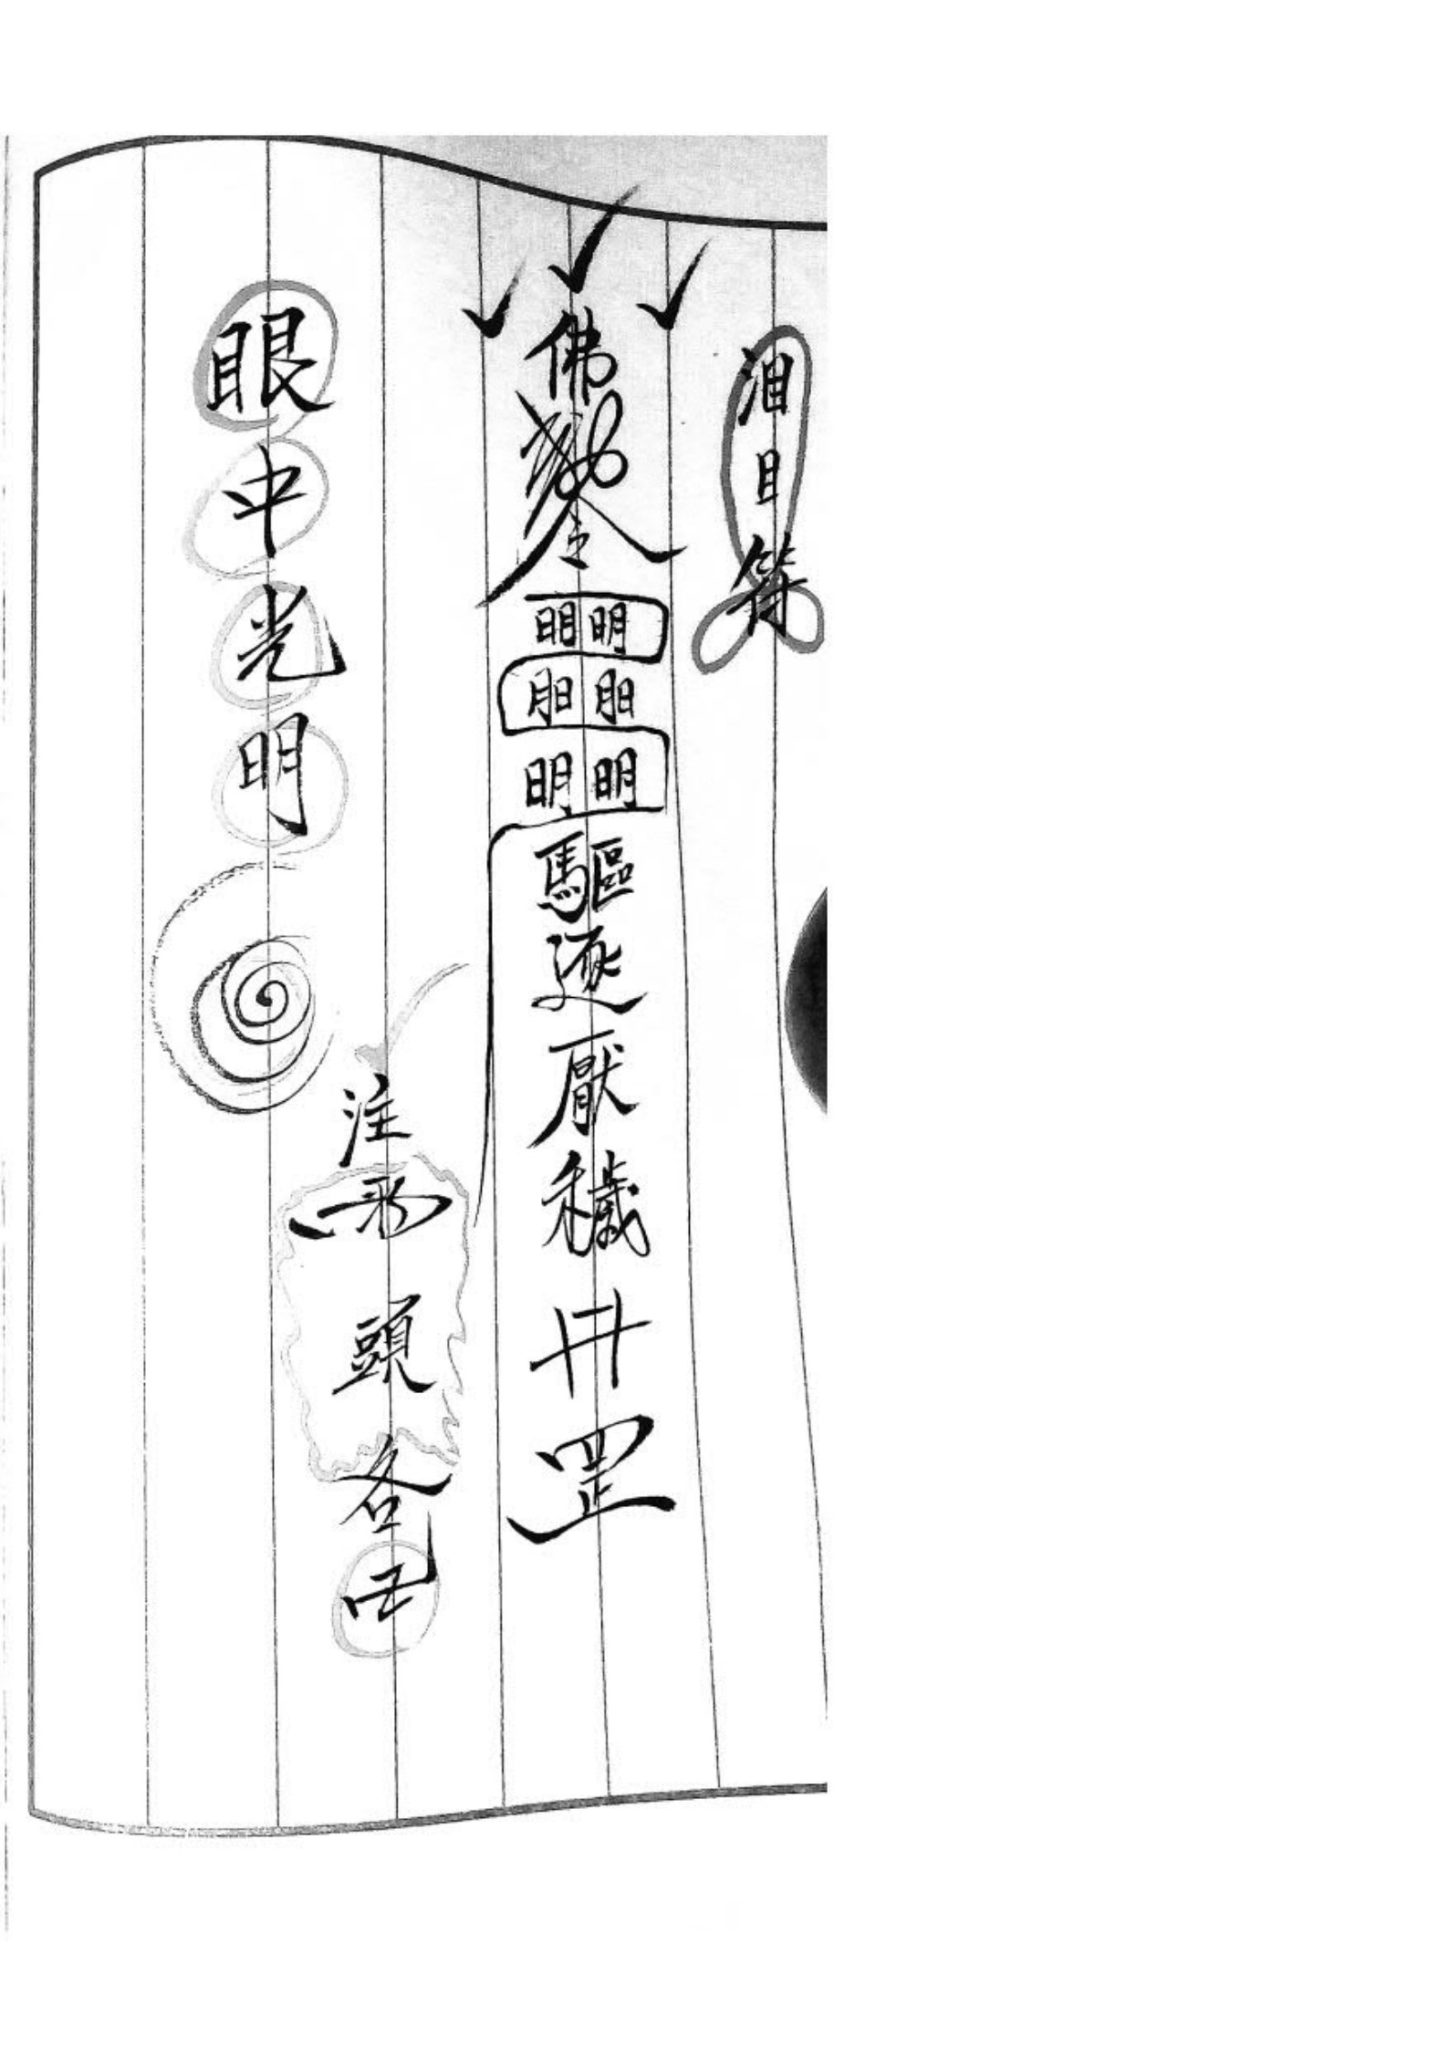 泪目符
佛
明明
明明
明明
驅逐厭穢
罡
注
形
頭
眼中光明